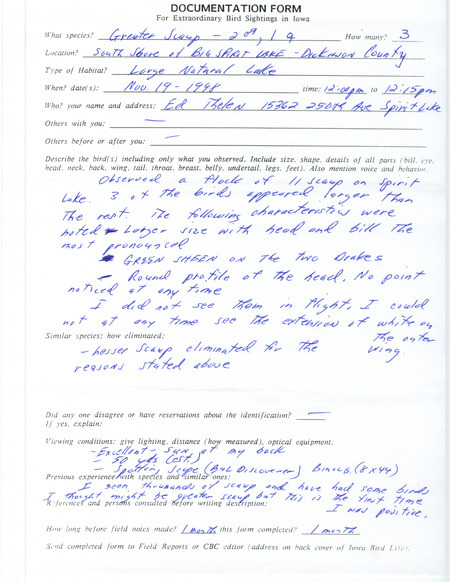 DOCUMENTATION FORM
For Extraordinary Bird Sightings in Iowa
What species? Greater Scaup - 2 ♂♂, 1 ♀ How many? 3
Location? South Shore of BIG SPIRIT LAKE - Dickinson County
Type of Habitat? Large Natural Lake
When? date(s): Nov. 19 - 1998 time: 12:00pm to 12:15pm
Who? your name and address: Ed Thelen 15362 250th Ave Spirit Lake
Others with you: —
Others before or after you: —
Describe the bird(s) including only what you observed. Include size, shape, details of all parts (bill, eye,
head, neck, back, wing, tail, throat, breast, belly, undertail, legs, feet). Also mention voice and behavior.
Observed a flock of 11 scaup on Spirit
Lake. 3 of the birds appeared larger than
The rest. The following characteristics were
noted - Larger size with head and bill the
most pronounced
- GREEN SHEEN on The two Drakes
- Round profile of the head. No point
noticed at any time
I did not see them in flight, I could
not at any time see the extension of white on
the outer
Similar species; how eliminated: wing.
- Lesser Scaup eliminated for the
reasons stated above
Did any one disagree or have reservations about the identification? —
If yes, explain:
Viewing conditions: give lighting, distance (how measured), optical equipment.
- Excellent - Sun at my back
- 50 yds (est.)
- Spotting Scope (B&L Discoverer) Binocs. (8x44)
Previous experience with species and similar ones:
I seen thousands of scaup and have had some birds
I thought might be greater scaup but this is the first time
References and persons consulted before writing description: I was positive.
How long before field notes made? 1 month this form completed? 1 month
Send completed form to Field Reports or CBC editor (address on back cover of Iowa Bird Life).